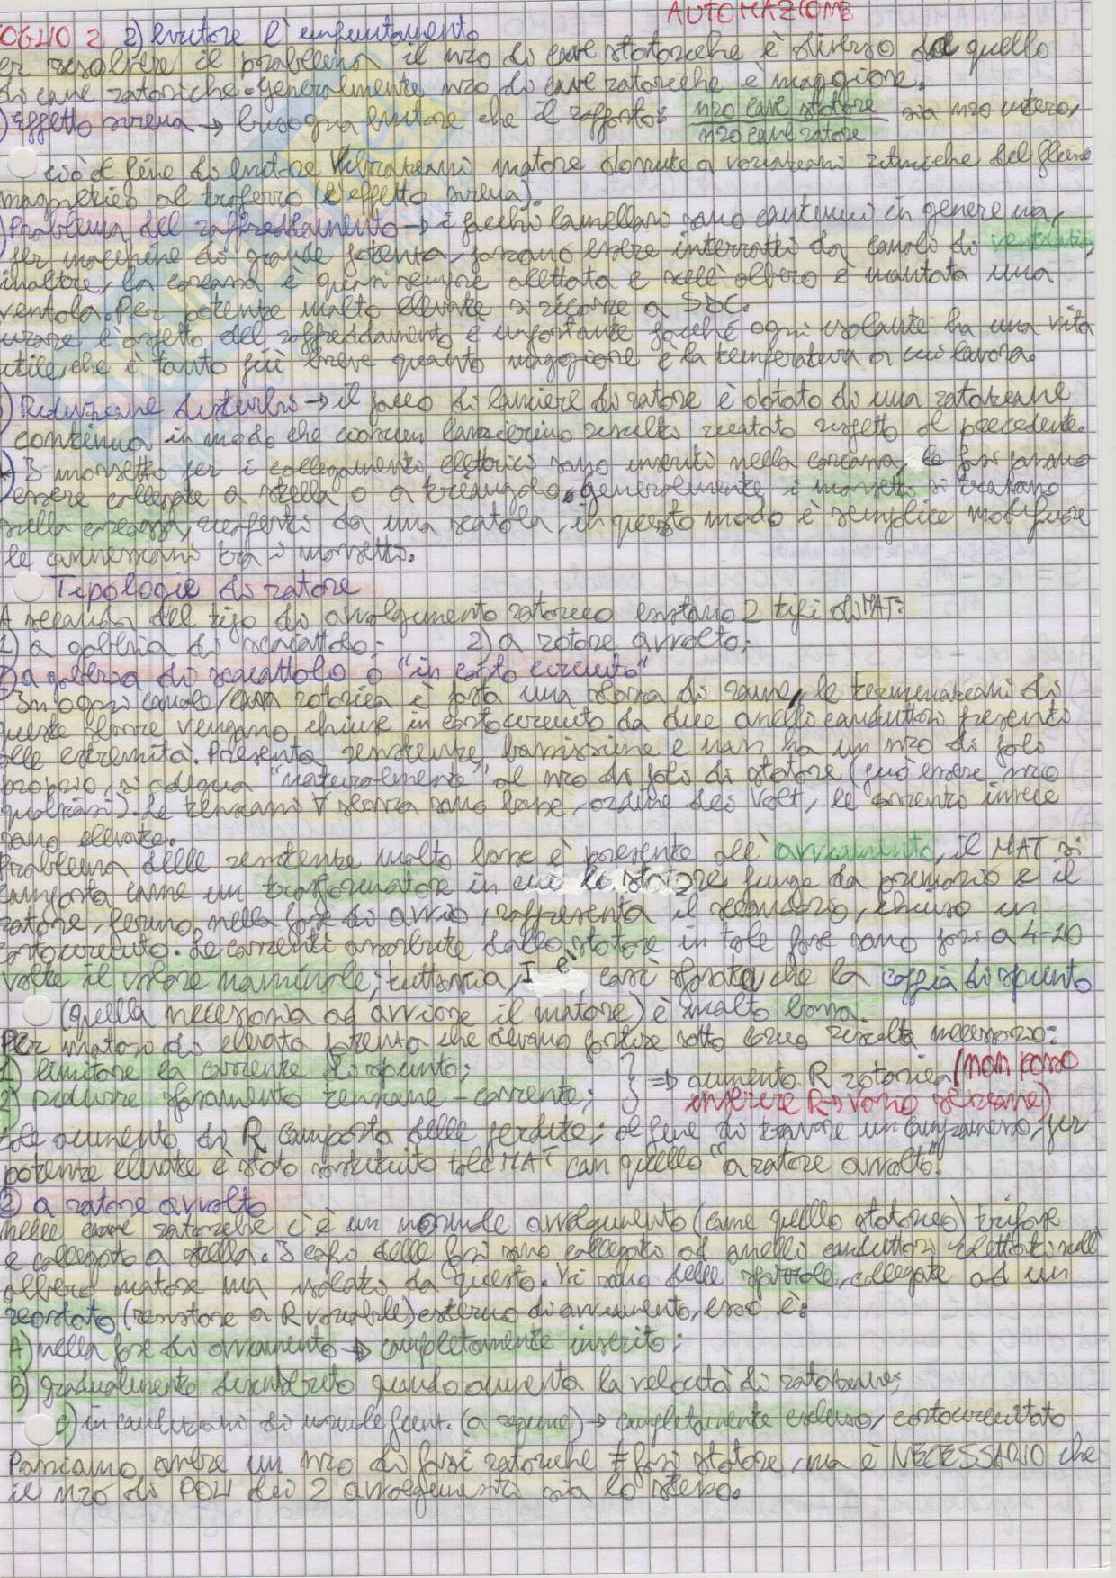 AUTOMAZIONE
FOGLIO 2 2) Evitare l'impuntamento
Per risolvere il problema il nro di cave statoriche è diverso da quello
di cave rotoriche. Generalmente nro di cave rotoriche è maggiore.
) Effetto sirena → bisogna evitare che il rapporto: nro cave statore / nro cave rotore sia nro intero,
ciò al fine di evitare vibrazioni motore dovute a variazioni ritmiche del flusso
magnetico al traferro (effetto sirena).
) Problema del raffreddamento → i pacchi lamellari sono continui in genere ma,
per macchine di grande potenza, possono essere interrotti da canali di ventilaz.,
inoltre, la carcassa è quasi sempre alettata e sull'albero è montata una
ventola. Per potenze molto elevate si ricorre a
l'aspetto del raffreddamento è importante poiché ogni isolante ha una vita
utile che è tanto più breve quanto maggiore è la temperatura a cui lavora.
) Riduzione disturbi → il pacco di lamiere di rotore è dotato di una rotazione
continua in modo che ciascun lamierino risulti ruotato rispetto al precedente.
) I morsetti per i collegamenti elettrici sono inseriti nella carcassa, le fasi possono
essere collegate a stella o a triangolo. generalmente i morsetti si trovano
sulla carcassa, coperti da una scatola, in questo modo è semplice modificare
le connessioni tra i morsetti.
Tipologie di rotore
A seconda del tipo di avvolgimento rotorico esistono 2 tipi di MAT:
1) a gabbia di scoiattolo; 2) a rotore avvolto;
1) a gabbia di scoiattolo o "in corto circuito"
In ogni canale/cava rotorica è posta una sbarra di rame, le terminazioni di
queste sbarre vengono chiuse in cortocircuito da due anelli conduttori presenti
alle estremità. Presenta resistenze bassissime e non ha un nro di poli
proprio, si adegua "naturalmente" al nro di poli di statore (può essere nro
qualsiasi). Le tensioni ∀ sbarra sono basse, ordine dei Volt, le correnti invece
sono elevate.
Problema delle resistenze molto basse è presente all'avviamento, il MAT si
comporta come un trasformatore in cui lo statore funge da primario e il
rotore, fermo nella fase di avvio, rappresenta il secondario, chiuso in
cortocircuito. Le correnti assorbite dallo statore in tale fase sono pari a 4-10
volte il valore nominale; tuttavia, I è così sfasata che la coppia di spunto
(quella necessaria ad avviare il motore) è molto bassa.
Per motori di elevata potenza che devono partire sotto carico risulta necessario:
1) limitare la corrente di spunto;
2) ridurre sfasamento tensione-corrente; } => aumento R rotorica (non posso
inserire R → vano rotazione)
Tale aumento di R comporta delle perdite; al fine di trovare un compromesso, per
potenze elevate è stato sostituito tale MAT con quello "a rotore avvolto".
② a rotore avvolto
Nelle cave rotoriche c'è un normale avvolgimento (come quello statorico) trifase
e collegato a stella. I capi delle fasi sono collegati ad anelli conduttori calettati sull'
albero motore ma isolati da questo. Vi sono delle spazzole, collegate ad un
reostato (resistore a R variabile) esterno di avviamento, esso è:
A) nella fase di avviamento → completamente inserito;
B) gradualmente disinserito quando aumenta la velocità di rotazione;
C) in condizioni di normale funz. (a regime) → completamente escluso, cortocircuitato
Possiamo avere un nro di fasi rotoriche ≠ fasi statore, ma è NECESSARIO che
il nro di POLI dei 2 avvolgimenti sia lo stesso.